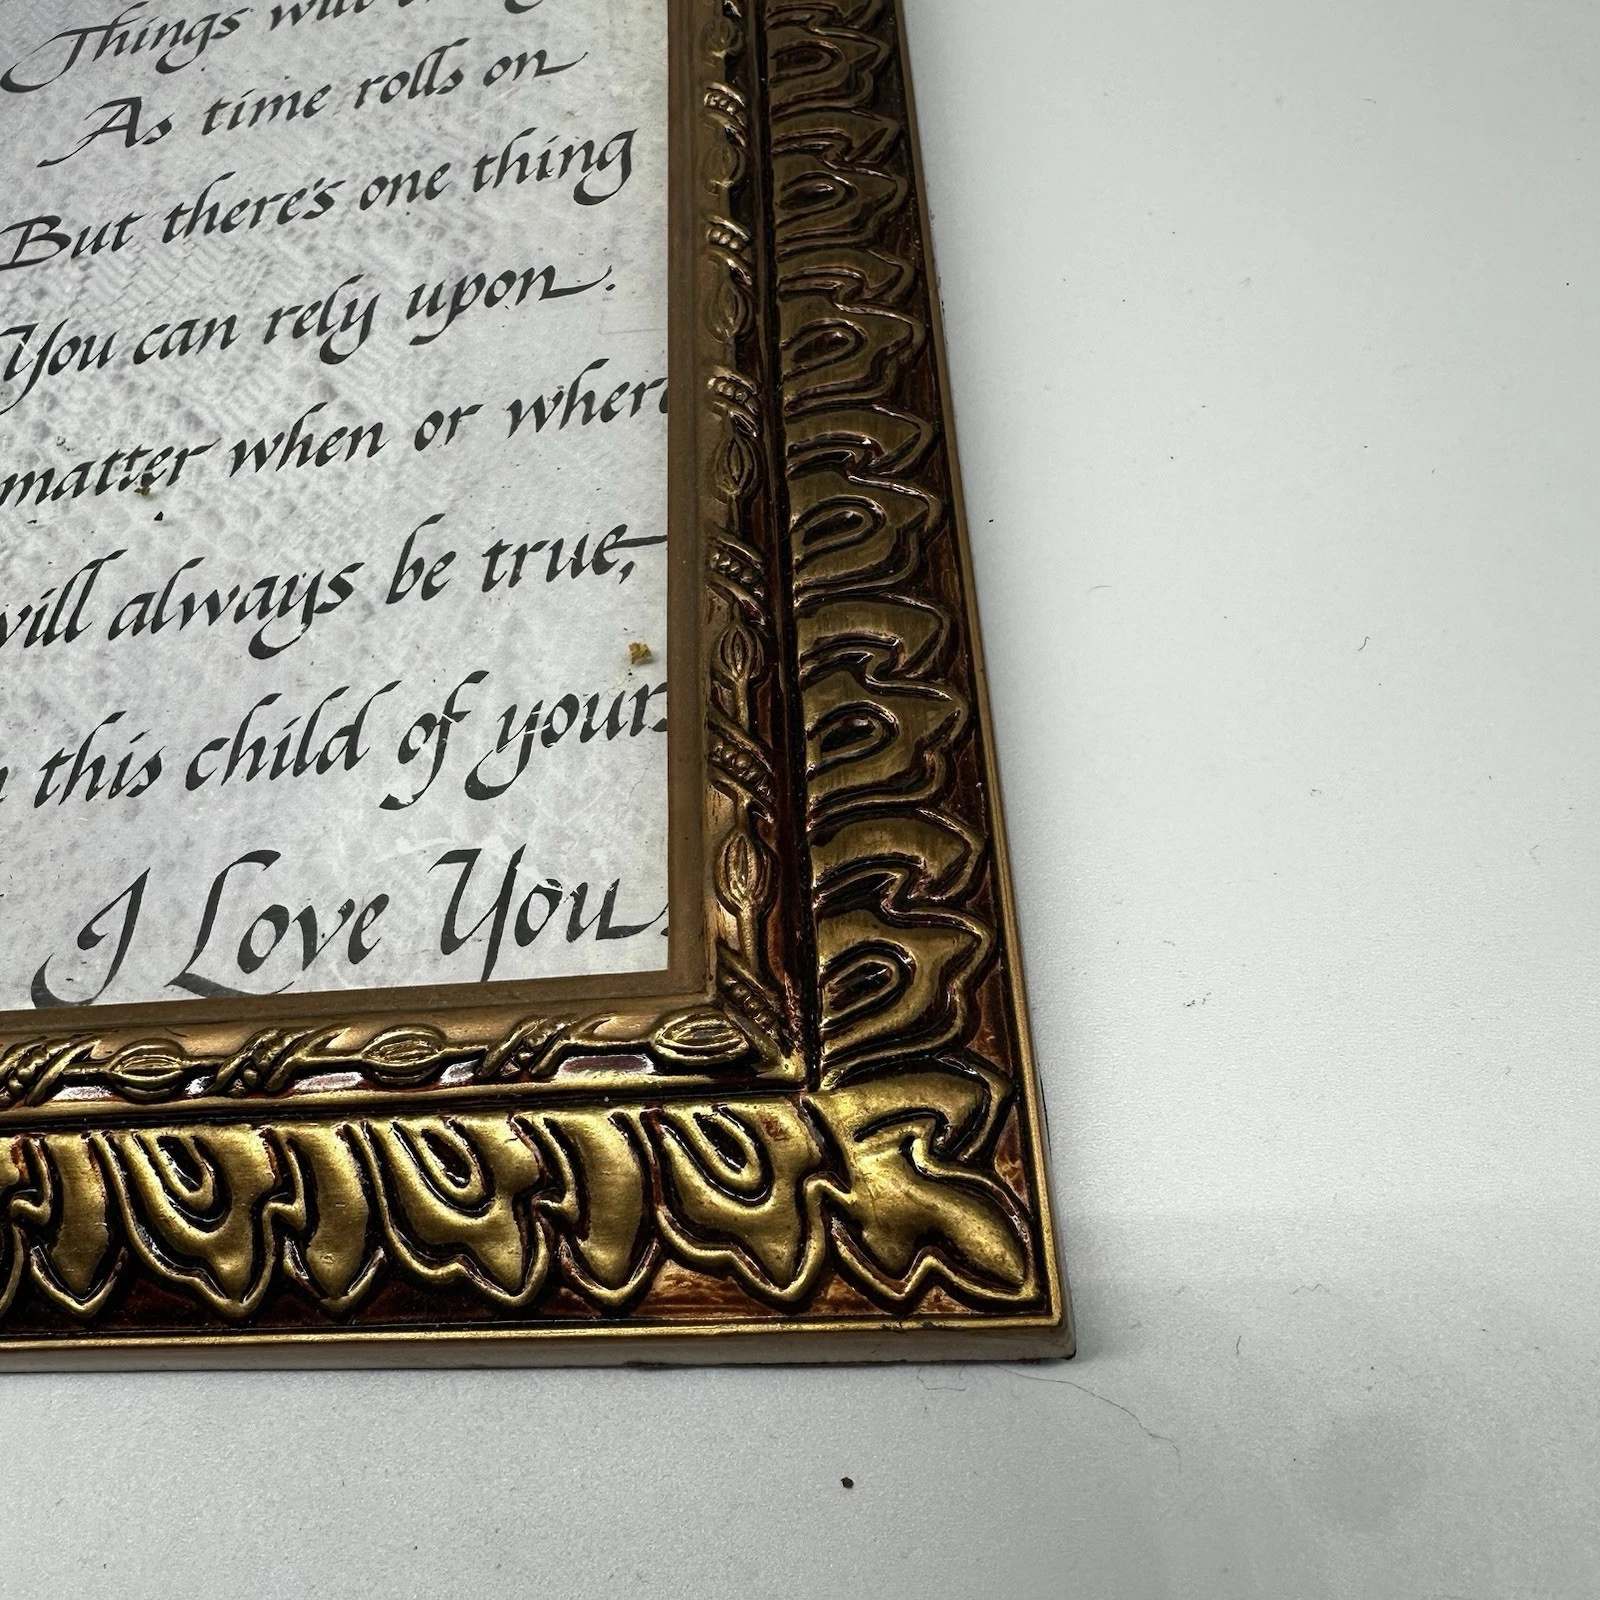 Things will
As time rolls on
But there's one thing
You can rely upon.
matter when or where
will always be true,
this child of yours
I Love You.